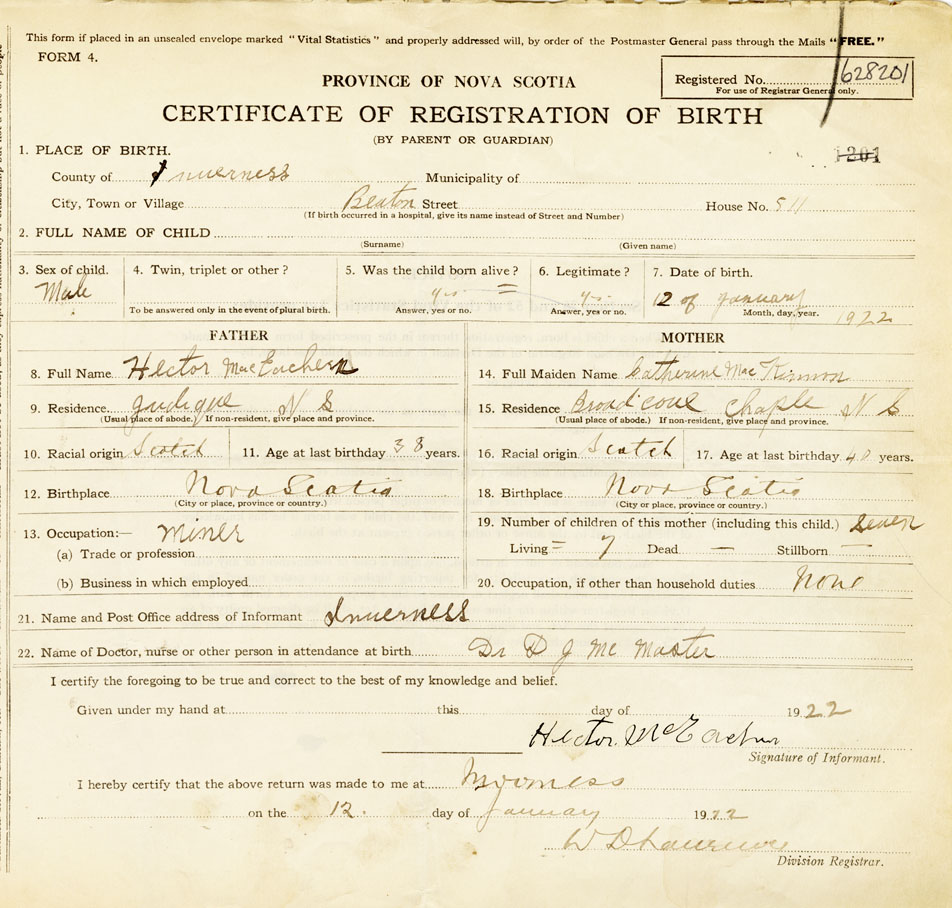 This form if placed in an unsealed envelope marked "Vital Statistics" and properly addressed will, by order of the Postmaster General pass through the Mails "FREE."
FORM 4.
PROVINCE OF NOVA SCOTIA
Registered No. 628201
For use of Registrar General only.
CERTIFICATE OF REGISTRATION OF BIRTH
(BY PARENT OR GUARDIAN)
1201
1. PLACE OF BIRTH.
County of Inverness Municipality of
City, Town or Village Beaton Street House No. 511
(If birth occurred in a hospital, give its name instead of Street and Number)
2. FULL NAME OF CHILD
(Surname) (Given name)
3. Sex of child. 4. Twin, triplet or other? 5. Was the child born alive? 6. Legitimate? 7. Date of birth.
Male yes yes 12 of January
To be answered only in the event of plural birth. Answer, yes or no. Answer, yes or no. Month, day, year. 1922
FATHER MOTHER
8. Full Name Hector MacEachern 14. Full Maiden Name Catherine Mac Kinnon
9. Residence Judique N S 15. Residence Broad cove Chaple N S
(Usual place of abode.) If non-resident, give place and province. (Usual place of abode.) If non-resident, give place and province.
10. Racial origin Scotch 11. Age at last birthday 38 years. 16. Racial origin Scotch 17. Age at last birthday 40 years.
12. Birthplace Nova Scotia 18. Birthplace Nova Scotia
(City or place, province or country.) (City or place, province or country.)
13. Occupation:— Miner 19. Number of children of this mother (including this child.) Seven
(a) Trade or profession Living = 7 Dead — Stillborn —
(b) Business in which employed 20. Occupation, if other than household duties None
21. Name and Post Office address of Informant Inverness
22. Name of Doctor, nurse or other person in attendance at birth Dr D J Mc Master
I certify the foregoing to be true and correct to the best of my knowledge and belief.
Given under my hand at this day of 1922
Hector McEachern
Signature of Informant.
I hereby certify that the above return was made to me at Inverness
on the 12 day of January 1922
W D
Division Registrar.